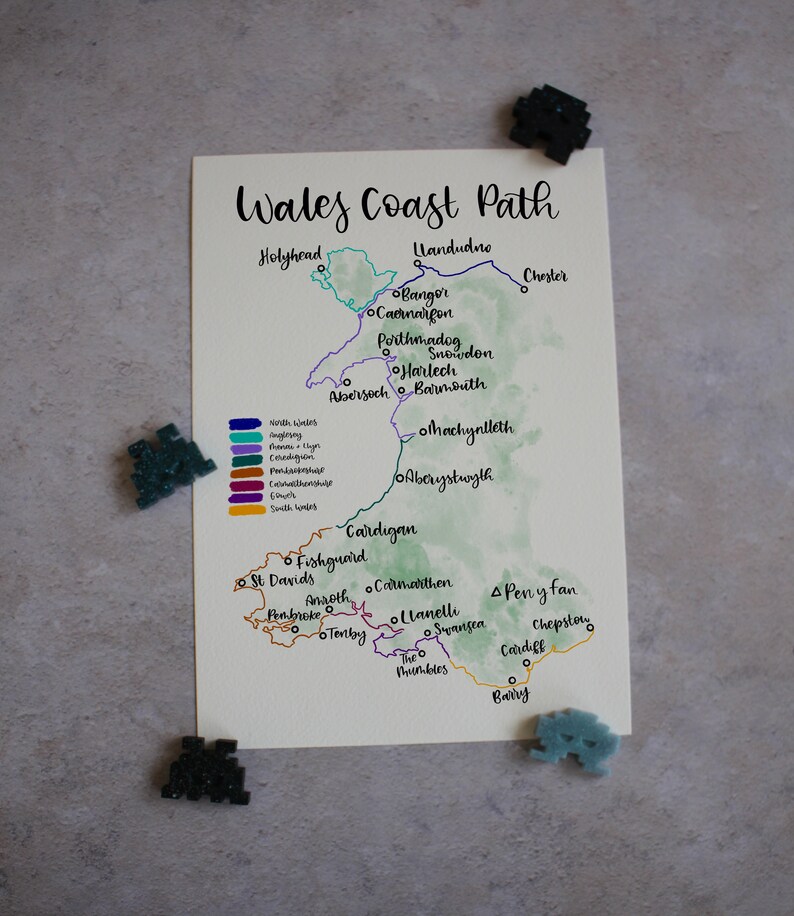 Wales Coast Path
Holyhead
Llandudno
Chester
Bangor
Caernarfon
Porthmadog
Snowdon
Harlech
Abersoch
Barmouth
North Wales
Anglesey
Menai + Llyn
Ceredigion
Pembrokeshire
Carmarthenshire
Gower
South Wales
Machynlleth
Aberystwyth
Cardigan
Fishguard
St Davids
Carmarthen
Pen y Fan
Amroth
Pembroke
Llanelli
Tenby
Swansea
Chepstow
The
Mumbles
Cardiff
Barry